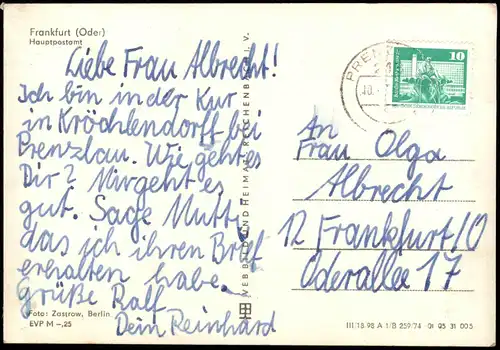 Frankfurt (Oder)
Hauptpostamt
Liebe Frau Albrecht!
Ich bin in der Kur
in Kröchlendorff bei
Prenzlau. Wie geht es
Dir? Mir geht es
gut. Sage Mutti
das ich ihren Brief
erhalten habe.
grüße Ralf
Dein Reinhard
Foto: Zastrow, Berlin
EVP M –,25
VEB BILD UND HEIMAT REICHENBACH I. V.
PREN
10
An
Frau Olga
Albrecht
12 Frankfurt/O
Oderallee 17
III/18-98 A 1/B 259/74 01 05 31 005